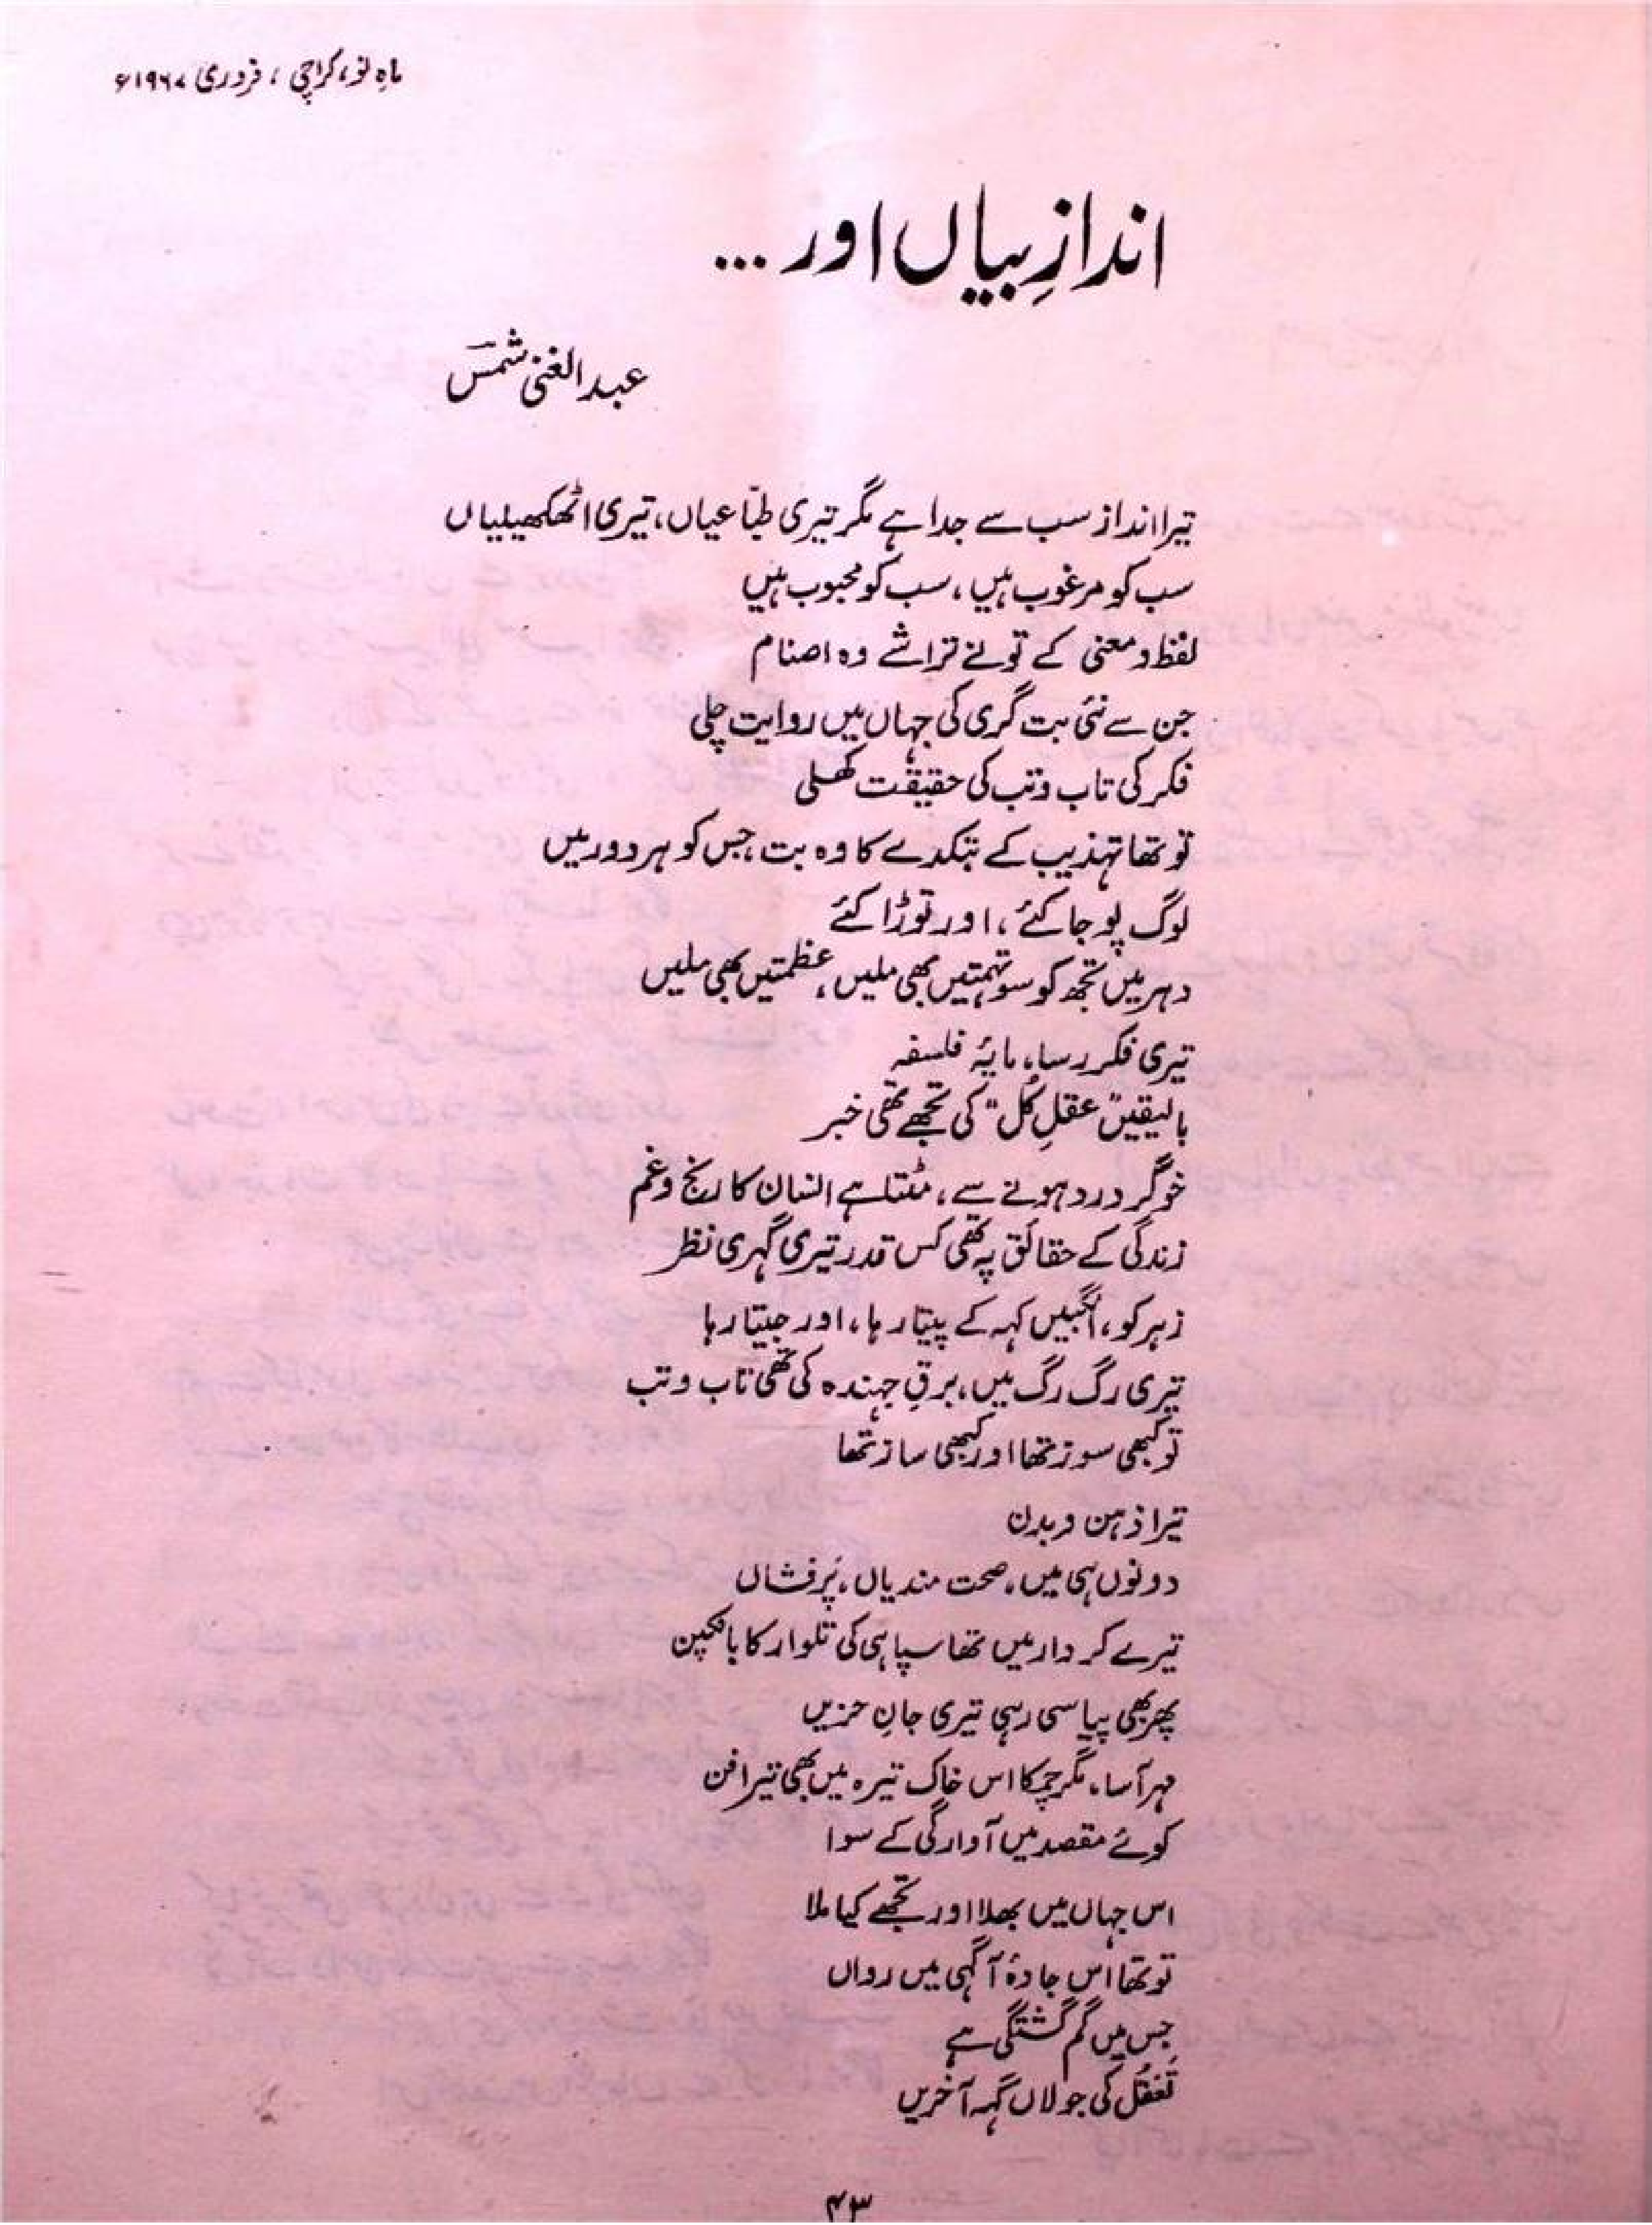 ماہِ نو، کراچی، فروری ۱۹۶۷ء
اندازِ بیاں اور ...
عبدالغنی شمسؔ
تیرا انداز سب سے جدا ہے مگر تیری طبّاعیاں، تیری اٹھکھیلیاں
سب کو مرغوب ہیں، سب کو محبوب ہیں
لفظ و معنی کے تو نے تراشے وہ اصنام
جن سے نئی بت گری کی جہاں میں روایت چلی
فکر کی تاب و تب کی حقیقت کھلی
تو تھا تہذیب کے بتکدے کا وہ بت، جس کو ہر دور میں
لوگ پوجا کئے، اور توڑا کئے
دہر میں تجھ کو سو تہمتیں بھی ملیں، عظمتیں بھی ملیں
تیری فکر رسا، مایۂ فلسفہ
بالیقیں "عقلِ کُل" کی تجھے تھی خبر
خوگر درد ہونے سے، مٹتا ہے انسان کا رنج و غم
زندگی کے حقائق پہ تھی کس قدر تیری گہری نظر
زہر کو، انگبیں کہہ کے پیتا رہا، اور جیتا رہا
تیری رگ رگ میں، برقِ جہندہ کی تھی تاب و تب
تو کبھی سوز تھا اور کبھی ساز تھا
تیرا ذہن و بدن
دونوں ہی میں، صحت مندیاں، پَرفشاں
تیرے کردار میں تھا سپاہی کی تلوار کا بانکپن
پھر بھی پیاسی رہی تیری جانِ حزیں
مہر آسا، مگر چمکا اس خاک تیرہ میں بھی تیرا فن
کوئے مقصد میں آوارگی کے سوا
اس جہاں میں بھلا اور تجھے کیا ملا
تو تھا اس جادۂ آگہی میں رواں
جس میں گم گشتگی ہے
تَعَقُل کی جولاں گہہ آخریں
۴۳